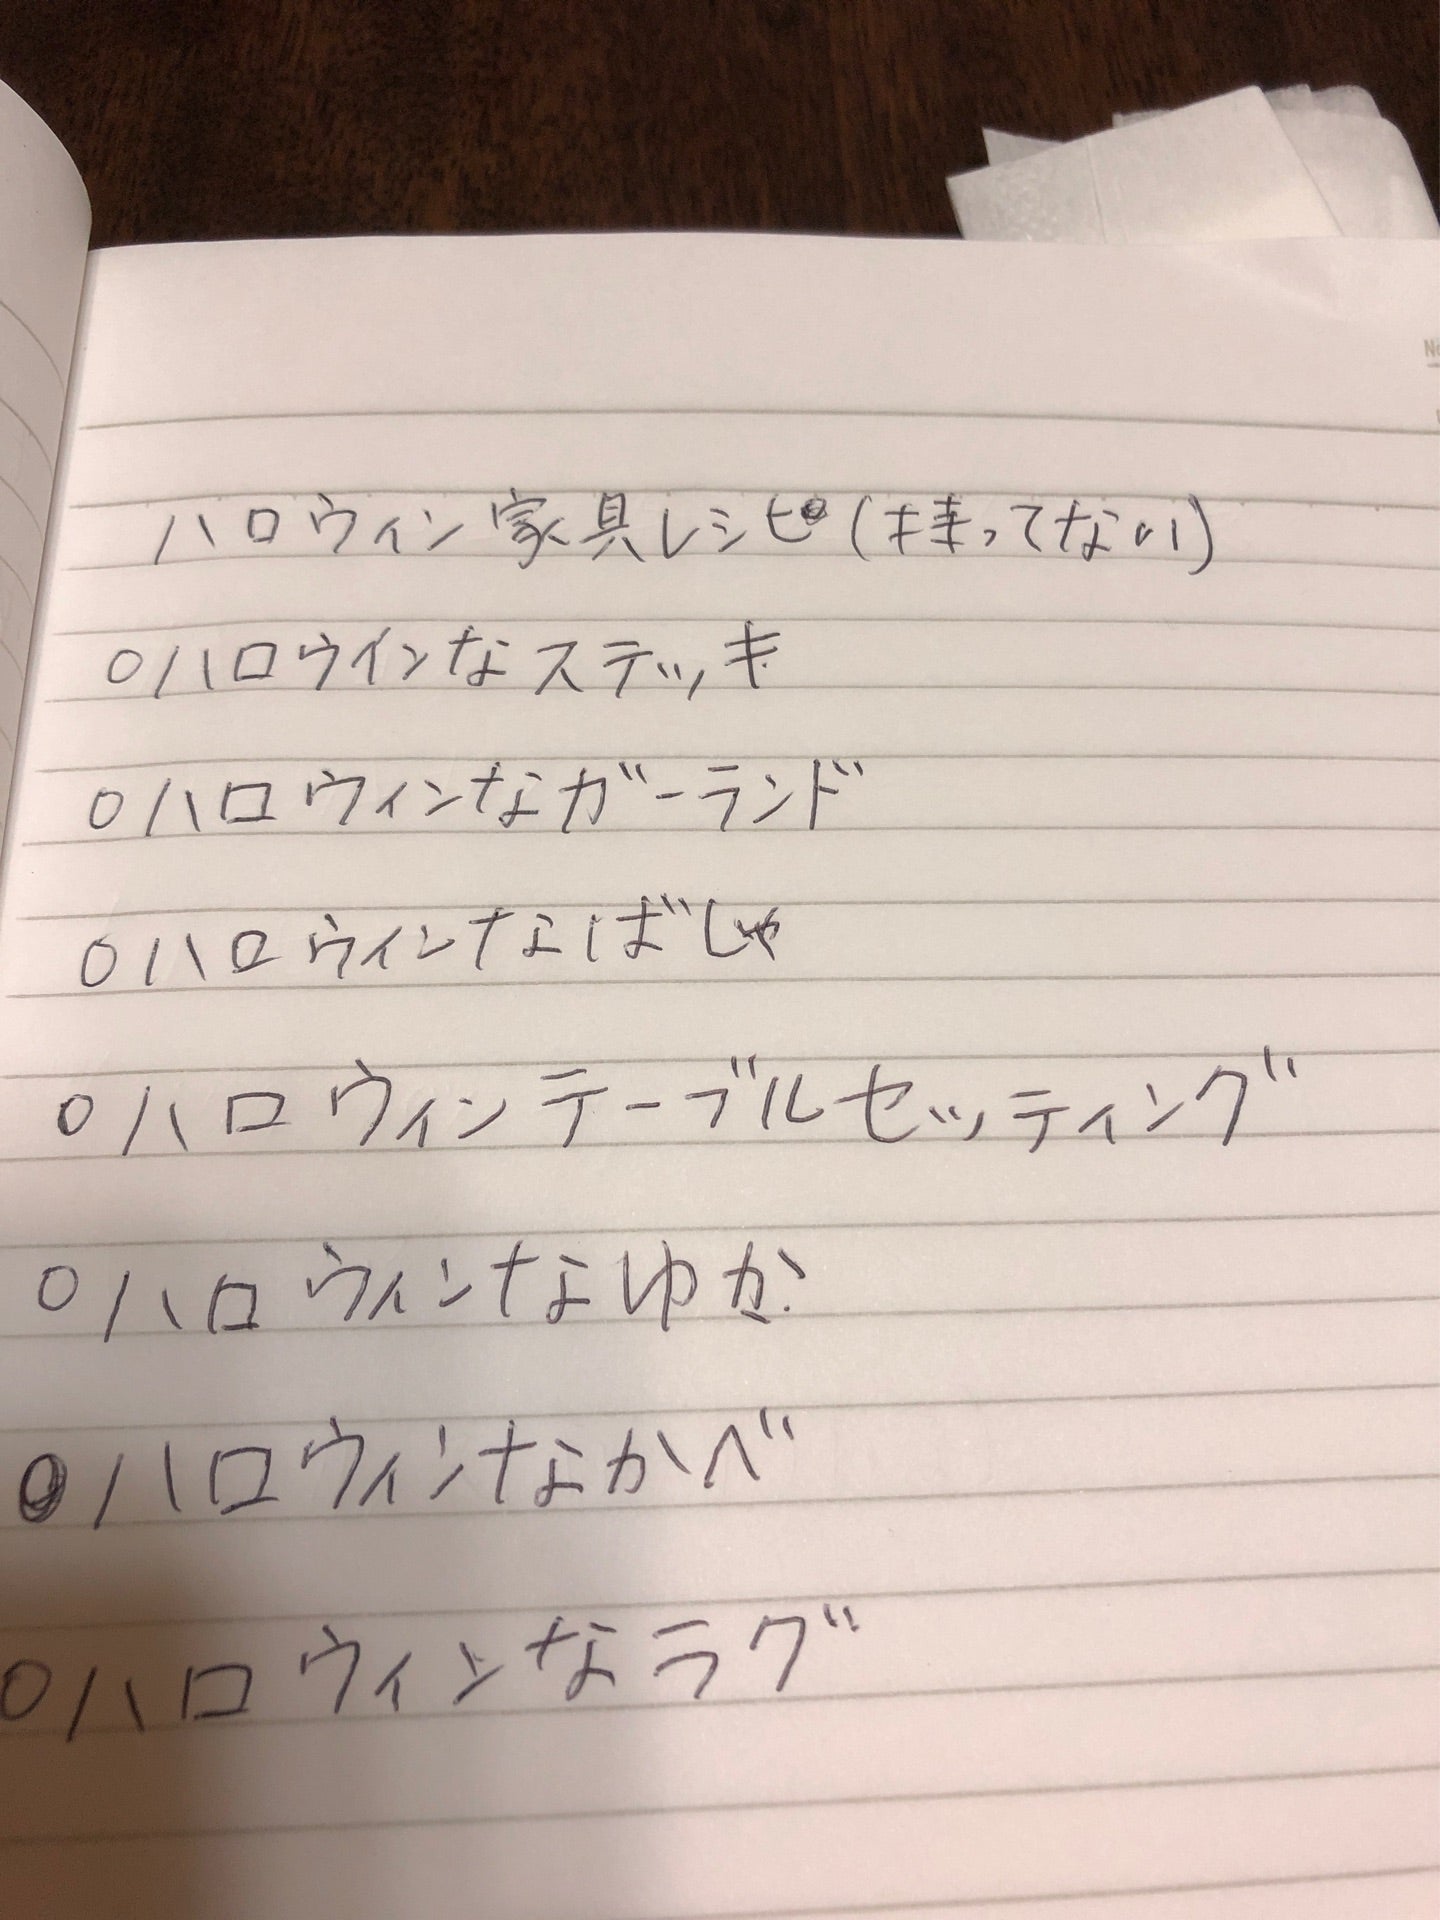 ハロウィン家具レシピ(持ってない)
○ハロウインなステッキ
○ハロウィンなガーランド
○ハロウィンなばしゃ
○ハロウィンテーブルセッティング
○ハロウィンなゆか
○ハロウィンなかべ
○ハロウィンなラグ